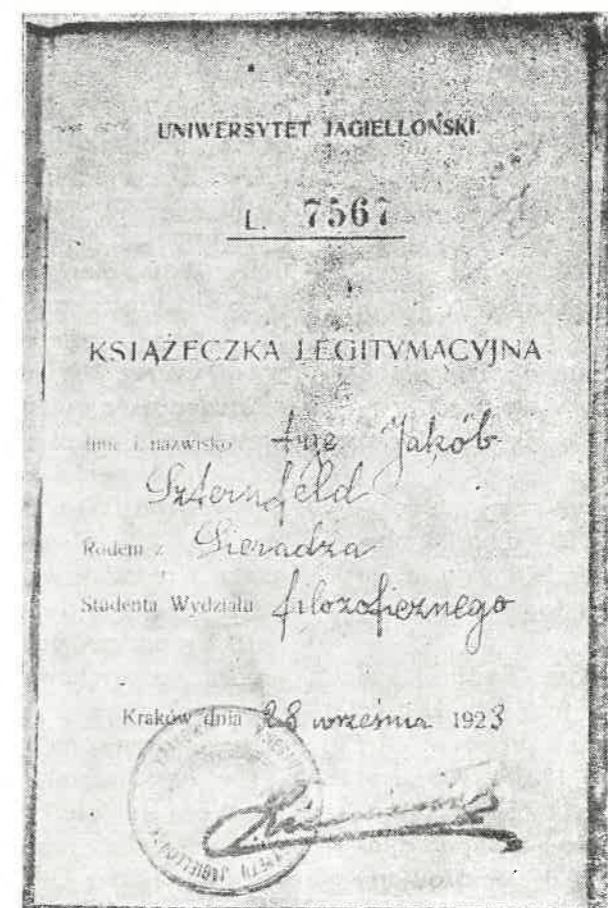 UNIWERSYTET JAGIELLOŃSKI.
L. 7567
KSIĄŻECZKA LEGITYMACYJNA
Imię i nazwisko Arje Jakób
Szternfeld
Rodem z Sieradza
Studenta Wydziału filozoficznego
Kraków dnia 28 września 1923
JAGIELLOŃ